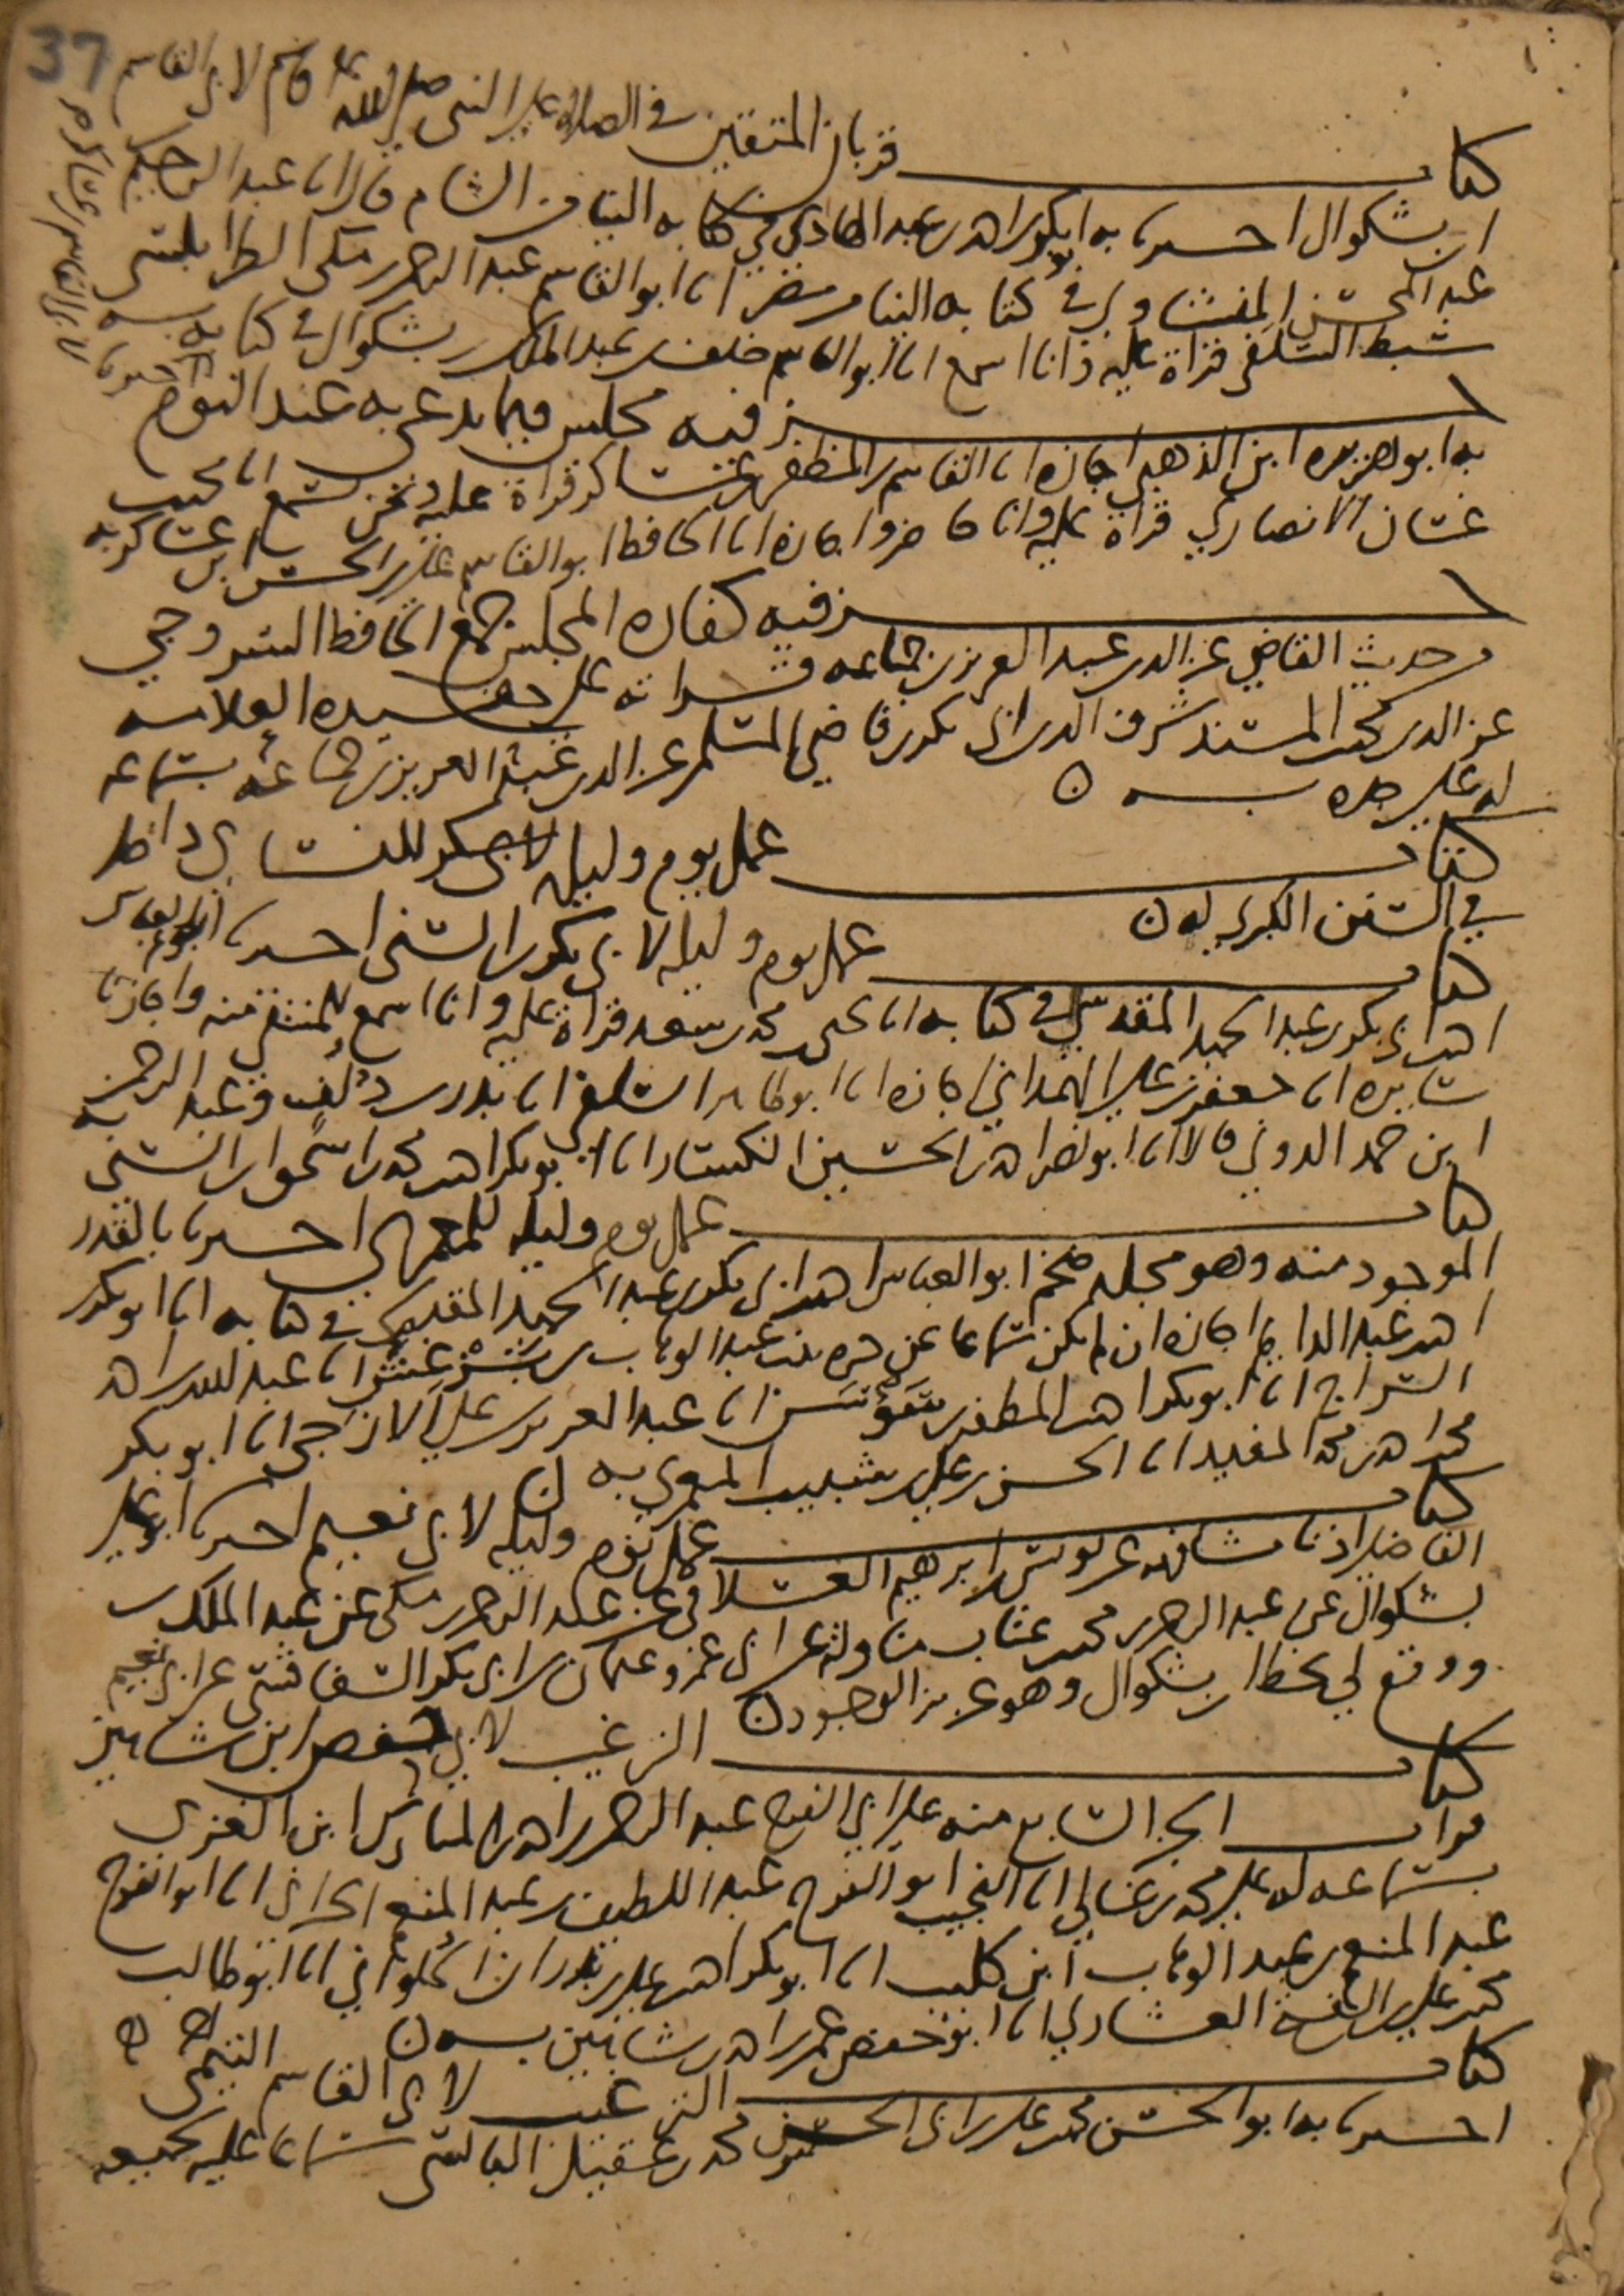 37
كتاب قربان المتقين في الصلاة على النبي صلى الله عليه وسلم لابي القاسم
ابن بشكوال اخبرنا به ابو بكر بن احمد بن عبد الهادي في كتابه الينا من الشام قالا انا عبد الرحيم
عبد المحسن المنشاوي في كتابه الينا من مصر انا ابو القاسم عبد الرحمن بن مكي الطرابلسي
سبط السلفي قراة عليه وانا اسمع انا ابو القاسم خلف بن عبد الملك بن بشكوال في كتابه
جزء فيه مجلس فيما يدعى به عند النوم اخبرنا
به ابو هريرة ابن الذهبي اجازه انا القاسم بن المظفر بن عساكر قراة عليه ونحن نسمع انا محمد بن
غسان الانصاري قراة عليه وانا حاضر واجازه انا الحافظ ابو القاسم علي بن الحسن بن عساكر به
جزء فيه كفارة المجلس جمع الحافظ السروجي
من حديث القاضي عز الدين عبد العزيز بن جماعه قراته على حفيده العلامه
عز الدين محمد بن المسند شرف الدين ابي بكر بن قاضي المسلمين عز الدين عبد العزيز بن جماعه بسماعه
له على جده بسنده
كتاب عمل يوم وليله للنسائي داخل
في السنن الكبرى له
كتاب عمل يوم وليله لابي بكر بن السني اخبرنا ابو العباس
احمد بن ابي بكر بن عبد الحميد المقدسي في كتابه انا يحيى بن محمد بن سعد قراة عليه وانا اسمع للمنتقى منه واجازه
سايره انا جعفر بن علي الهمداني اجازه انا ابو طاهر السلفي انا بدر بن دلف وعبد الرحمن
ابن حمد الدوني قالا انا ابو نصر احمد بن الحسين الكسار انا ابو بكر احمد بن محمد بن اسحق ابن السني به
كتاب عمل يوم وليله للمعمري اخبرنا بالقدر
الموجود منه وهو مجلد ضخم ابو العباس احمد بن ابي بكر بن عبد الحميد المقدسي في كتابه انا ابو بكر بن
احمد بن عبد الدايم اجازه ان لم يكن سماعا عن بنت عبد الوهاب انا عبد الله بن احمد
السراج انا ابو بكر احمد بن المظفر بن سوسن انا عبد العزيز بن علي الازجي انا ابو بكر
محمد بن احمد بن محمد المفيد انا الحسن بن علي بن شبيب المعمري به
كتاب عمل يوم وليله لابي نعيم اخبرنا ابو علي
الفاضلي اذنا مشافهه عن يونس بن ابرهيم العسقلاني عن عبد الرحمن بن مكي عن عبد الملك بن
بشكوال عن عبد الرحمن بن محمد بن عتاب مناوله عن ابي عمرو عثمان بن ابي بكر السفاقسي عن ابي نعيم
ووقع لي بخط ابن بشكوال وهو عزيز الوجود
كتاب الترغيب لابي حفص ابن شاهين
قرات الجزء السابع منه على ابي الفرج عبد الرحمن بن احمد بن المبارك ابن الغزي
بسماعه له على محمد بن غالي انا النجيب ابو الفرج عبد اللطيف بن عبد المنعم الحراني انا ابو الفرج
عبد المنعم بن عبد الوهاب ابن كليب انا ابو بكر احمد بن علي بن بدران الحلواني انا ابو طالب
محمد بن علي بن الفتح العشاري انا ابو حفص عمر بن احمد بن شاهين به
كتاب الترغيب لابي القاسم التيمي
اخبرنا به ابو الحسن محمد بن علي بن ابي الحسن محمد بن عقيل البالسي سماعا عليه لجميعه